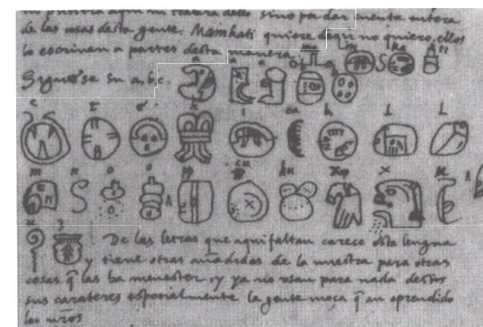 de las cosas desta gente. Mamkati quiere dezir no quiero, ellos
lo escriven a partes desta manera
ma i n ka ti
Siguese su a, b, c.
a a a
c t e h i ca k l l
m n o o pp cu ku x x u
u z
De las letras que aqui faltan carece esta lengua
y tiene otras añadidas de la nuestra para otras
cosas q las ha menester y ya no usan para nada destos
sus carateres especialmente la gente moça q an aprendido
los nros